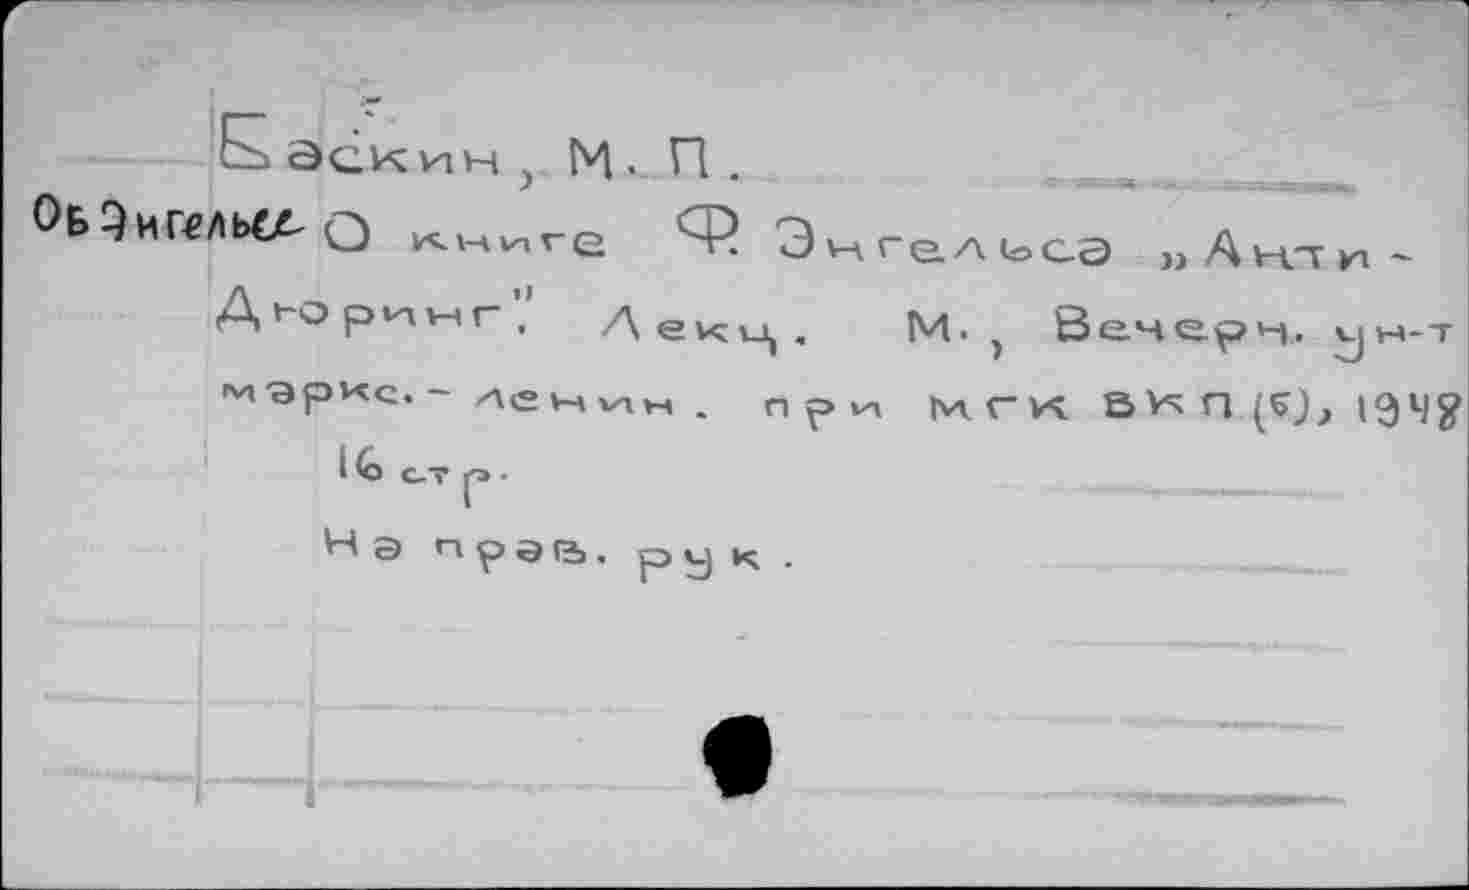 Баскин, М. П.
Об Энгельсе О книге Ф. Энгельса „Анти-
Дюринг". Лекц. М., Вечерн. ун-т
маркс.-ленин. при МГК ВКП(б), 1948
16 стр.
На прав. рук.